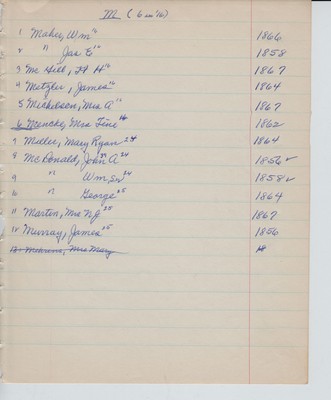 M (6 in '16)
1 Maher, Wm 16 1866
2 " Jas E 16 1858
3 Mc Hill, H 16 1867
4 Metzler, James 16 1864
5 Mickelson, Mrs A 16 1867
6 Mencke, Mrs Fine 16 1862
7 Miller, Mary Ryan 24 1864
8 McDonald, John A 24 1856 ✓
9 " Wm, Sr 24 1858 ✓
10 " George 25 1864
11 Martin, Mrs N J 25 1867
12 Murray, James 25 1856
Mrs Mary